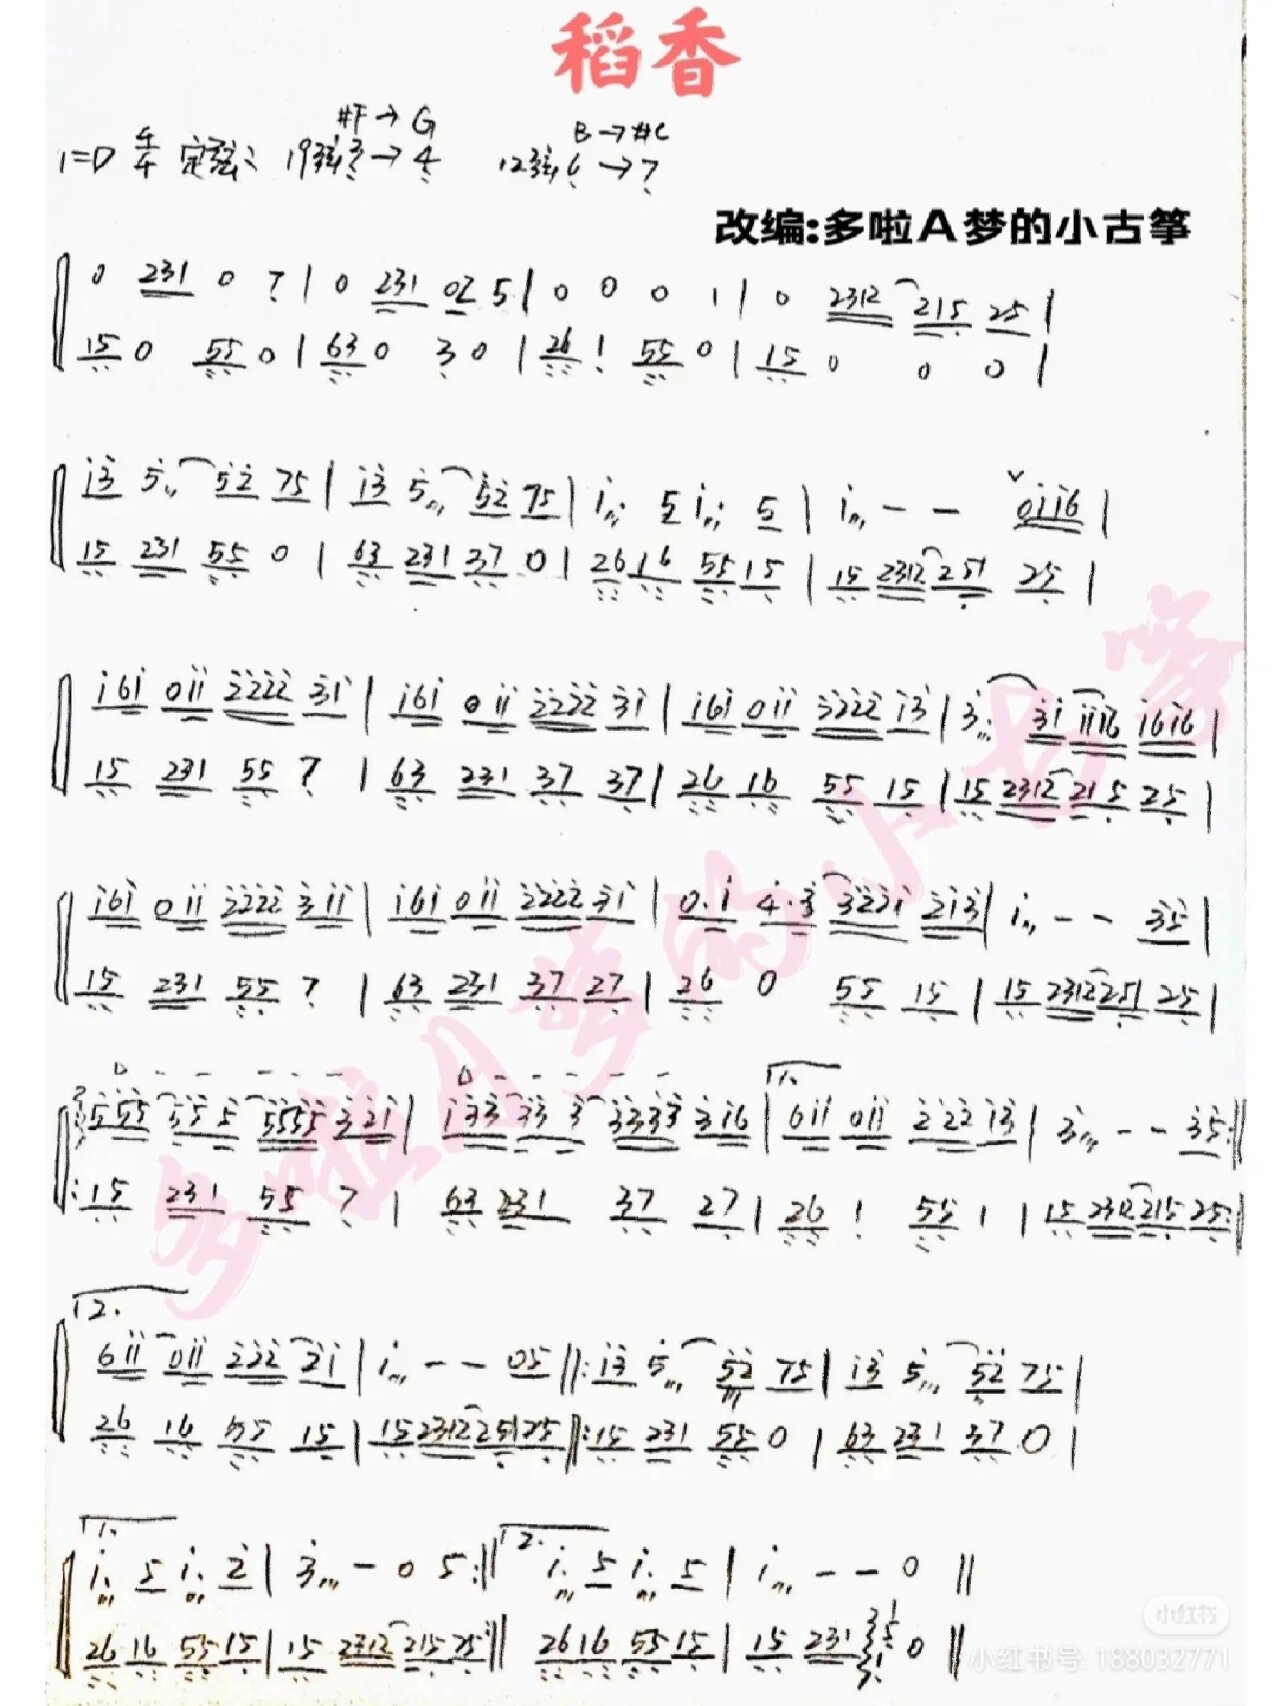 稻香
#F→G B→#C
1=D 4/4 定弦: 19弦3→4 12弦6→7
改编:多啦A梦的小古筝
0 231 0 7 | 0 231 02 5 | 0 0 0 1 | 0 2312 215 25 |
15 0 55 0 | 63 0 3 0 | 26 1 55 0 | 15 0 0 0 |
13 5 52 75 | 13 5 52 75 | 1 5 1 5 | 1 - - 0116 |
15 231 55 0 | 63 231 37 0 | 26 16 55 15 | 15 2312 251 25 |
161 011 2222 31 | 161 011 2222 31 | 161 011 3222 13 | 3 31 1116 1616 |
15 231 55 7 | 63 231 37 37 | 26 16 55 15 | 15 2312 215 25 |
161 011 2222 311 | 161 011 2222 31 | 0·1 4·3 3221 213 | 1 - - 35 |
15 231 55 7 | 63 231 37 27 | 26 0 55 15 | 15 2312 251 25 |
1.
555 55 5 5555 321 | 133 33 3 3333 316 | 611 011 222 13 | 3 - - 35 :||
: 15 231 55 7 | 63 231 37 27 | 26 1 55 1 | 15 2312 215 25 :||
2.
611 011 222 21 | 1 - - 05 ||: 13 5 52 75 | 13 5 52 75 |
26 16 55 15 | 15 2312 251 25 ||: 15 231 55 0 | 63 231 37 0 |
1. 2.
1 5 1 2 | 3 - 0 5 :|| 1 5 1 5 | 1 - - 0 ||
26 16 55 15 | 15 2312 215 25 :|| 26 16 55 15 | 15 231 0 ||
多啦A梦的小古筝
小红书
小红书号: 188032771